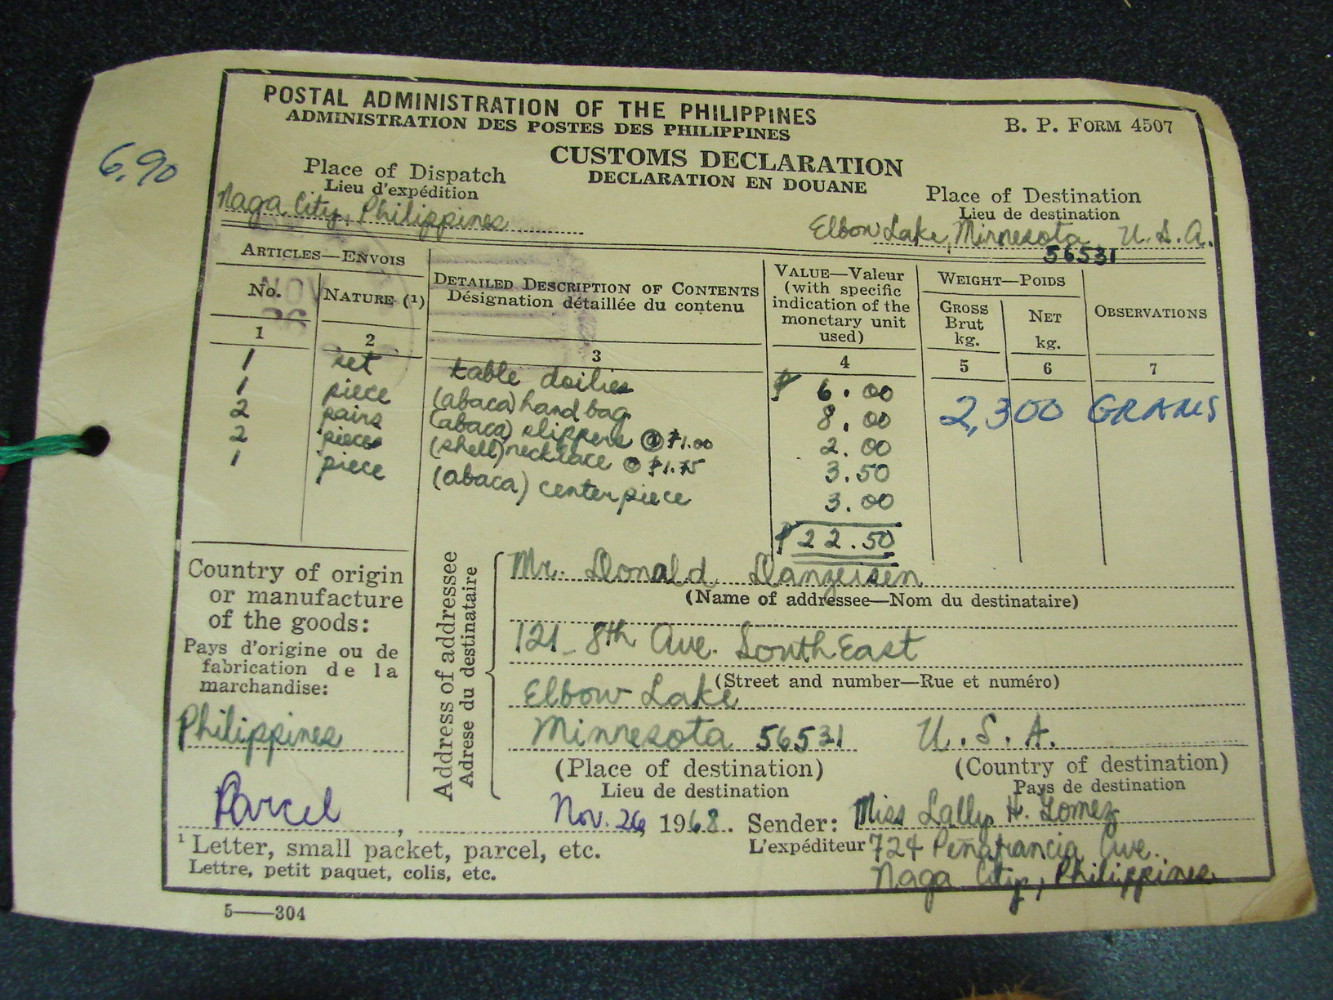 POSTAL ADMINISTRATION OF THE PHILIPPINES
ADMINISTRATION DES POSTES DES PHILIPPINES
B. P. FORM 4507
6.90
CUSTOMS DECLARATION
DECLARATION EN DOUANE
Place of Dispatch
Lieu d'expédition
Naga City, Philippines
Place of Destination
Lieu de destination
Elbow Lake, Minnesota U.S.A.
56531
ARTICLES—ENVOIS
No. NATURE (¹)
DETAILED DESCRIPTION OF CONTENTS
Désignation détaillée du contenu
VALUE—Valeur
(with specific
indication of the
monetary unit
used)
WEIGHT—POIDS
GROSS
Brut
kg.
NET
kg.
OBSERVATIONS
NOV
26
1 2 3 4 5 6 7
1 set table doilies ₱ 6.00
1 piece (abaca) hand bag 8.00
2 pairs (abaca) slippers @ ₱1.00 2.00
2 pieces (shell) necklace @ ₱1.75 3.50
1 piece (abaca) center piece 3.00
₱22.50
2,300 GRAMS
Country of origin
or manufacture
of the goods:
Pays d'origine ou de
fabrication de la
marchandise:
Philippines
Address of addressee
Adrese du destinataire
Mr. Donald Danzeisen
(Name of addressee—Nom du destinataire)
121 - 8th Ave. South East
(Street and number—Rue et numéro)
Elbow Lake
Minnesota 56531 U.S.A.
(Place of destination) (Country of destination)
Lieu de destination Pays de destination
Parcel, Nov. 26, 1968. Sender: Miss Lally H. Gomez
L'expéditeur 724 Peñafrancia Ave.
Naga City, Philippines
¹ Letter, small packet, parcel, etc.
Lettre, petit paquet, colis, etc.
5——304